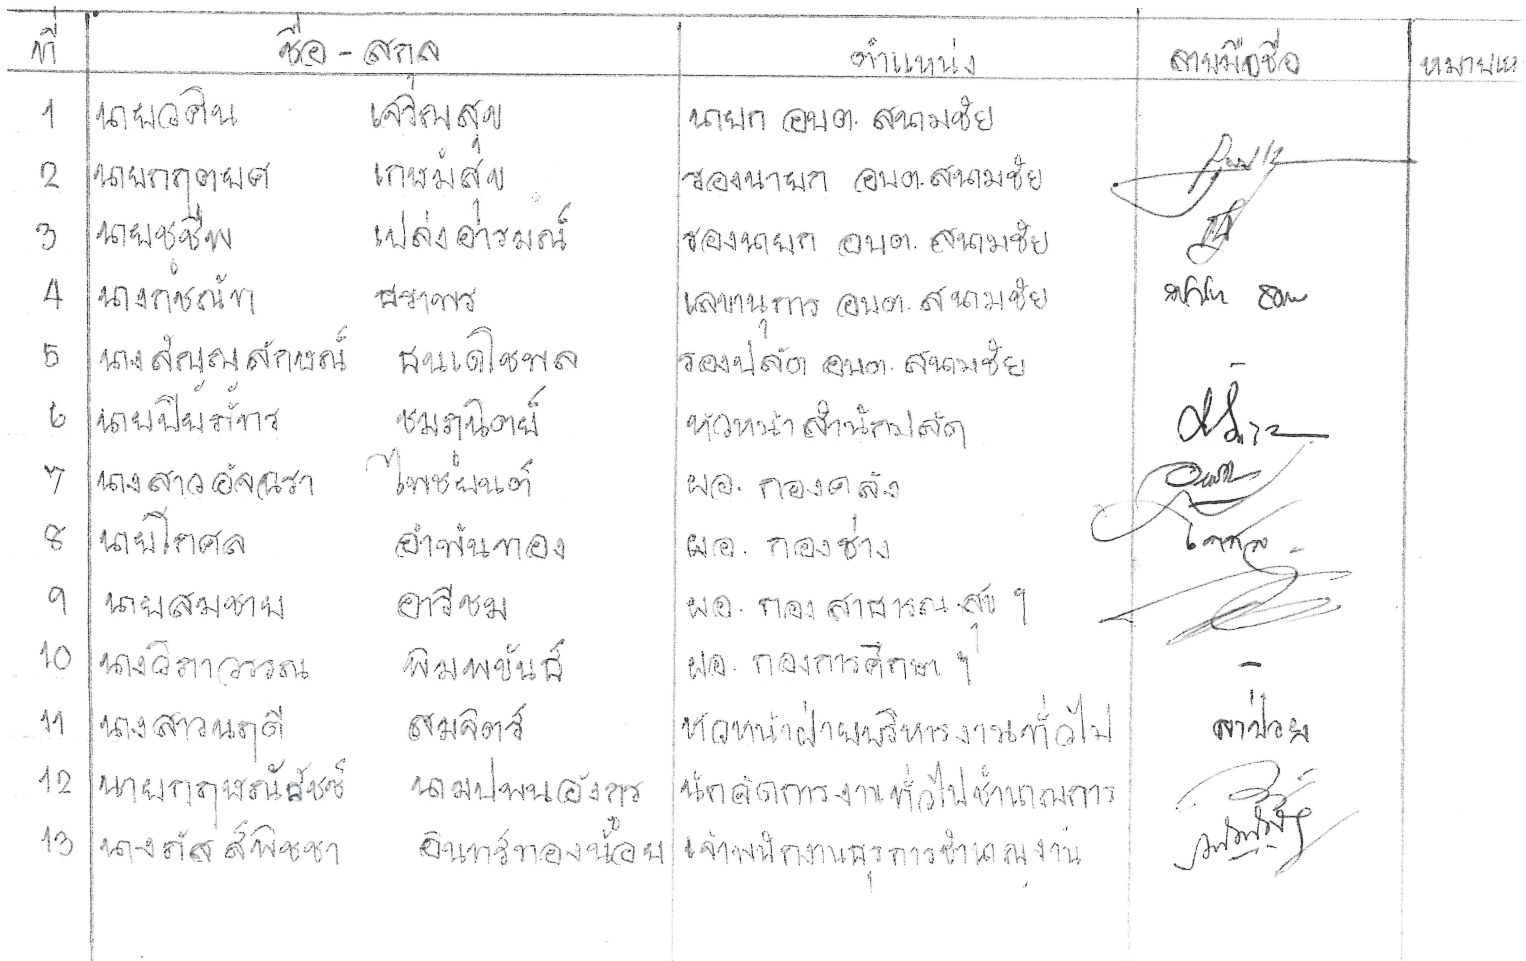 ที่ ชื่อ - สกุล ตำแหน่ง ลายมือชื่อ หมายเห
1 นายวศิน เจริญสุข นายก อบต. สนามชัย
2 นายกฤตยศ เกษมสุข รองนายก อบต. สนามชัย
3 นายชูชีพ เปล่งอารมณ์ รองนายก อบต. สนามชัย
4 นางกชณัท ธราพร เลขานุการ อบต. สนามชัย
5 นางสัญญลักษณ์ ธนเดโชพล รองปลัด อบต. สนามชัย
6 นายปิยภัทร ชมภูนิตย์ หัวหน้าสำนักปลัด
7 นางสาวอัจฉรา ไพชยนต์ ผอ. กองคลัง
8 นายโกศล อำพันทอง ผอ. กองช่าง โกศล
9 นายสมชาย อารีชม ผอ. กองสาธารณสุข ฯ
10 นางวิภาวรรณ พิมพขันธ์ ผอ. กองการศึกษา ฯ -
11 นางสาวนฤดี สมจิตร์ หัวหน้าฝ่ายบริหารงานทั่วไป ลาป่วย
12 นายกฤษณ์ธัชช์ นามปพนอังกูร นักจัดการงานทั่วไปชำนาญการ
13 นางภัสส์พิชชา อินทร์ทองน้อย เจ้าพนักงานธุรการชำนาญงาน